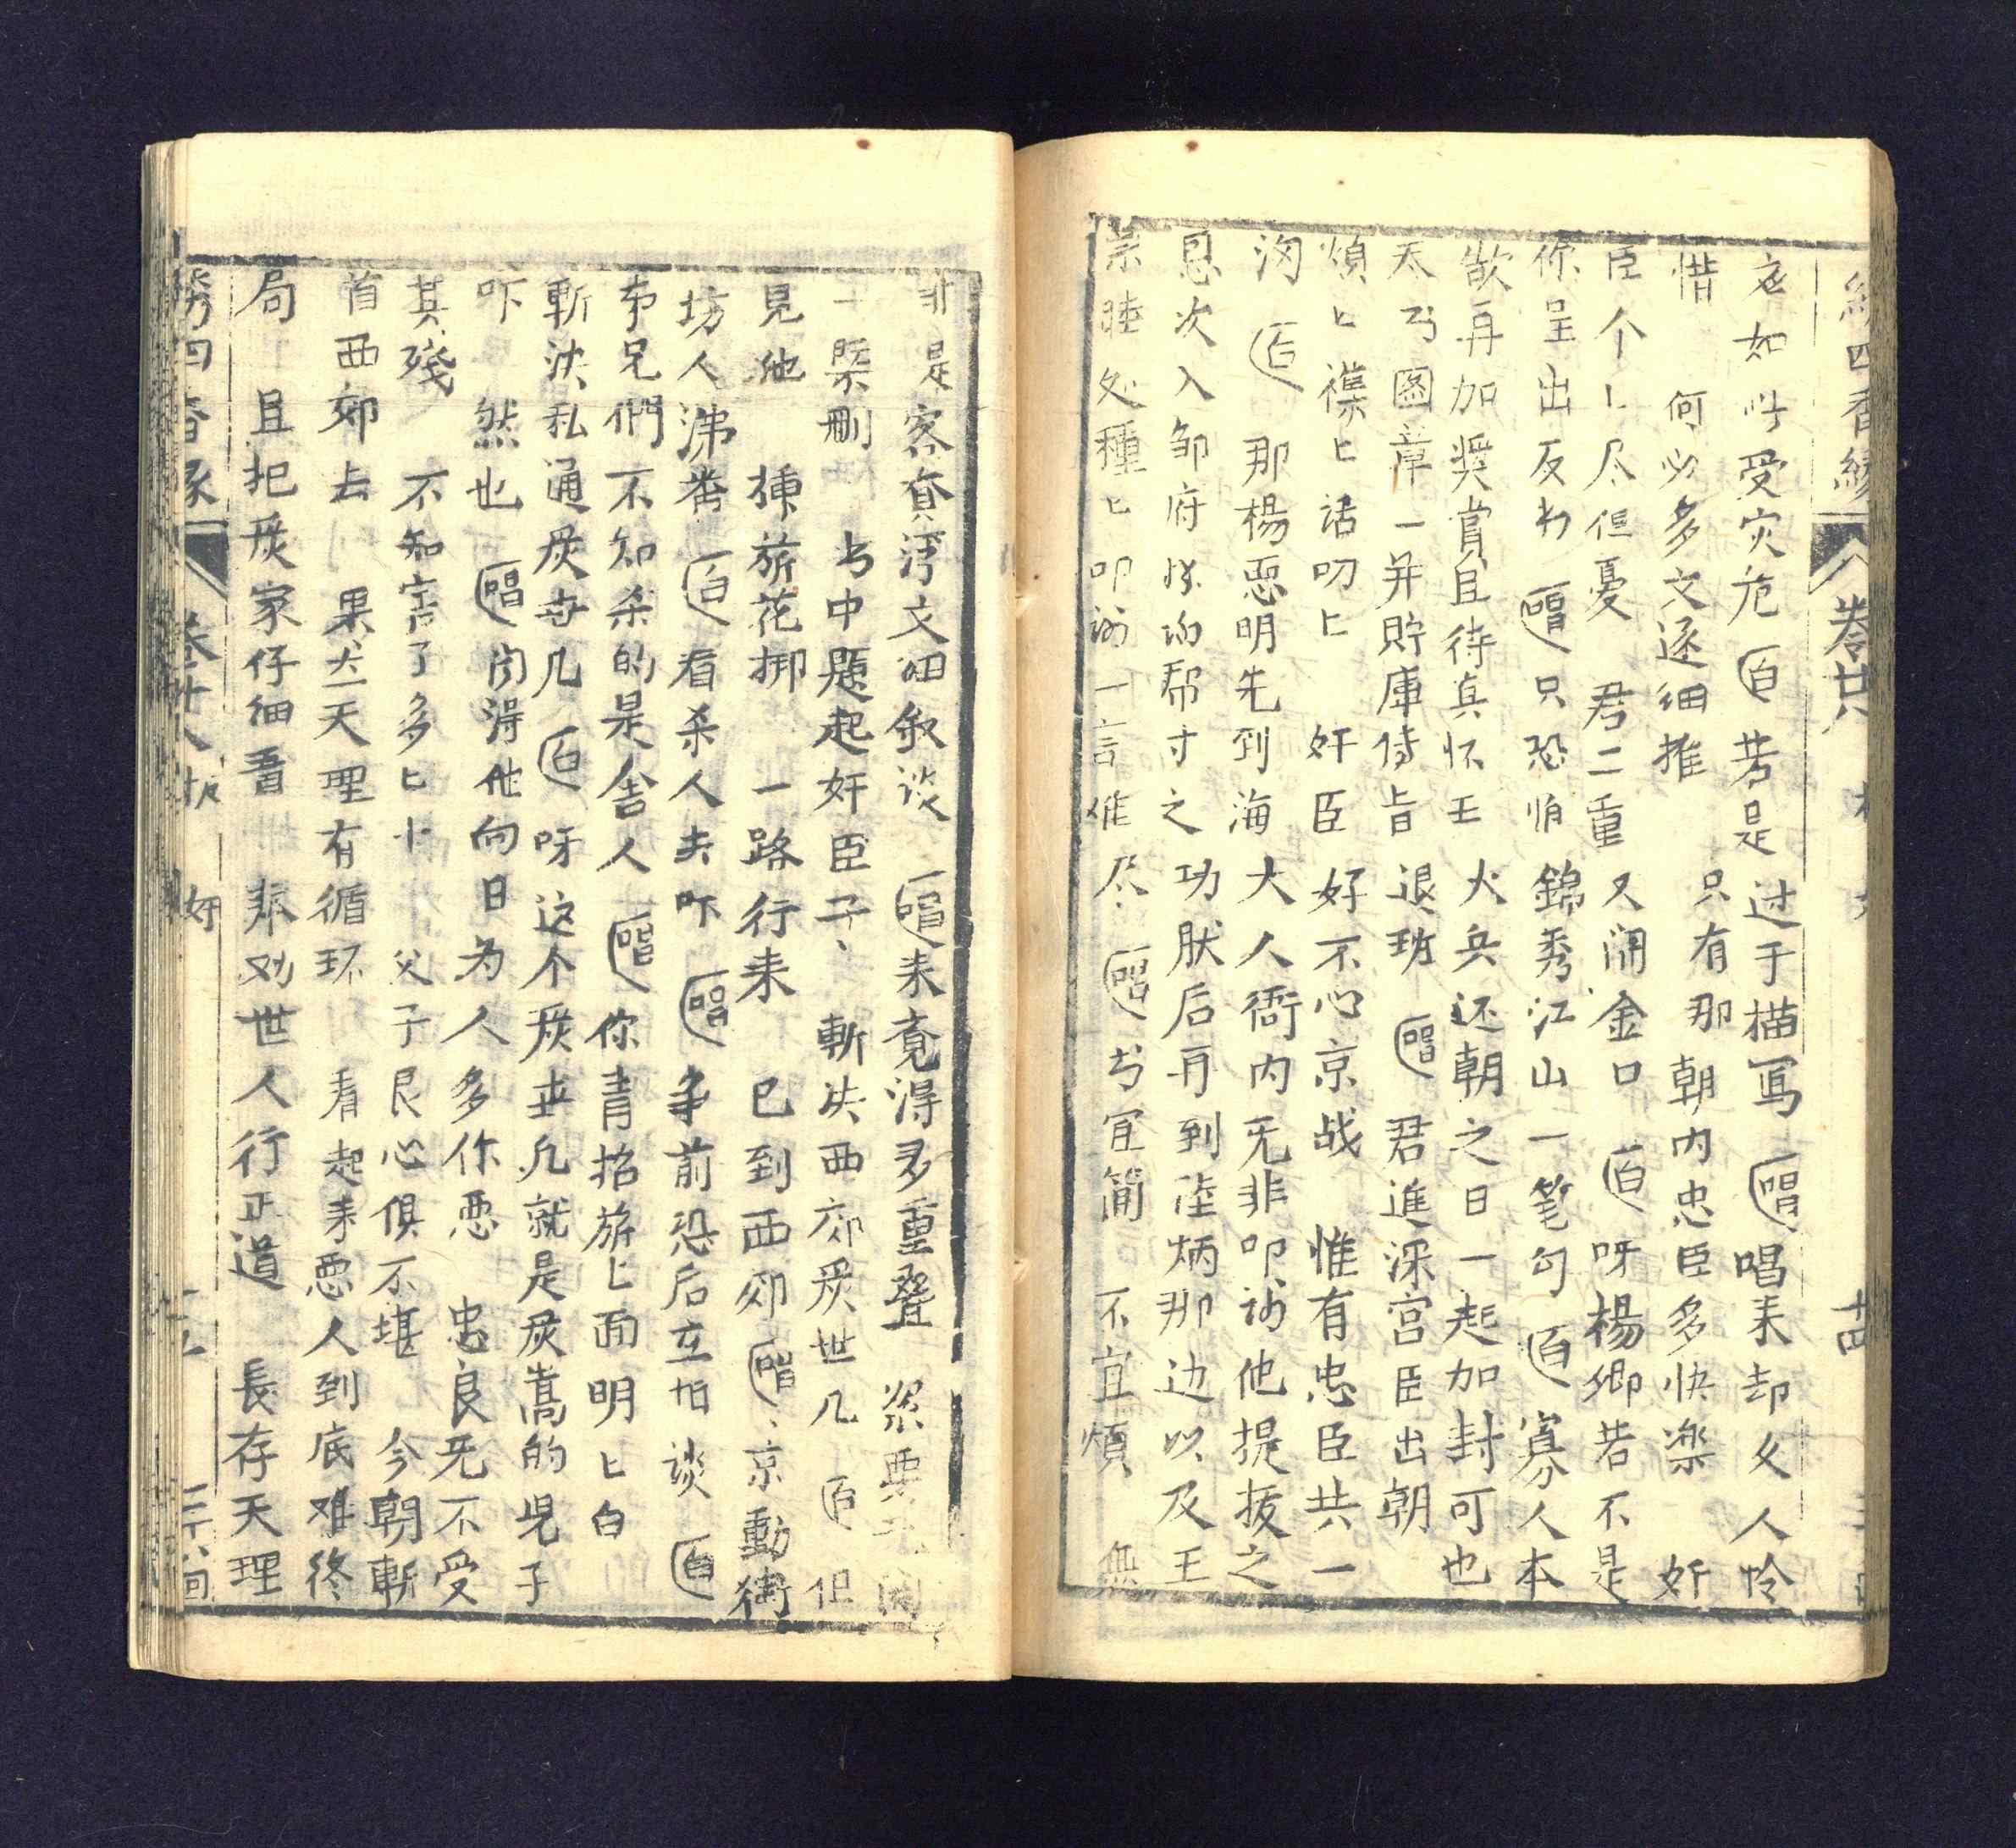 四香緣 卷廿八 十四
如此受灾危 白 若是过于描写 唱 唱来却又人怜
惜 何必多文逐细推 只有那朝内忠臣多快楽 奸
臣个匕尽但憂 君二重又闹金口 白 呀楊卿若不是
你呈出反书 唱 只恐怕錦秀江山一笔勾 白 寡人本
欲再加奨賞且待真怀王火兵还朝之日一起加封可也
天弓图章一并貯庫侍旨退班 唱 君進深宫臣出朝
煩匕襍匕話叨匕 奸臣好不心京战 惟有忠臣共一
沟 白 那楊恶明先到海大人衙内无非叩謝他提拔之
恩次入邹府 帮寸之功肰后再到陸炳那边以及王
宗睦处種匕叩謝一言难尽 唱 书宜簡 不宜煩 無
非是 文细叙谈 唱 来竟得多重叠
一槩删 书中題起奸臣子 斬决西郊炭世几 白 但
見他 揷旂花挷 一路行来 已到西郊 唱 京動街
坊人沸 白 看杀人去吓 唱 争前恐后立怕谈 白
弟兄們不知杀的是舍人 唱 你青招旂上面明匕白
斬决私通炭世几 白 呀这个炭世几就是炭嵩的児子
吓 然也 唱 问得他向日为人多作恶 忠良无不受
其殘 不知害了多匕小 父子良心俱不堪 今朝斬
首西郊去 果然天理有循环 看起来恶人到底难终
局 且把炭家仔细看 奉劝世人行正道 長存天理
四香緣 卷廿八 奸 十五